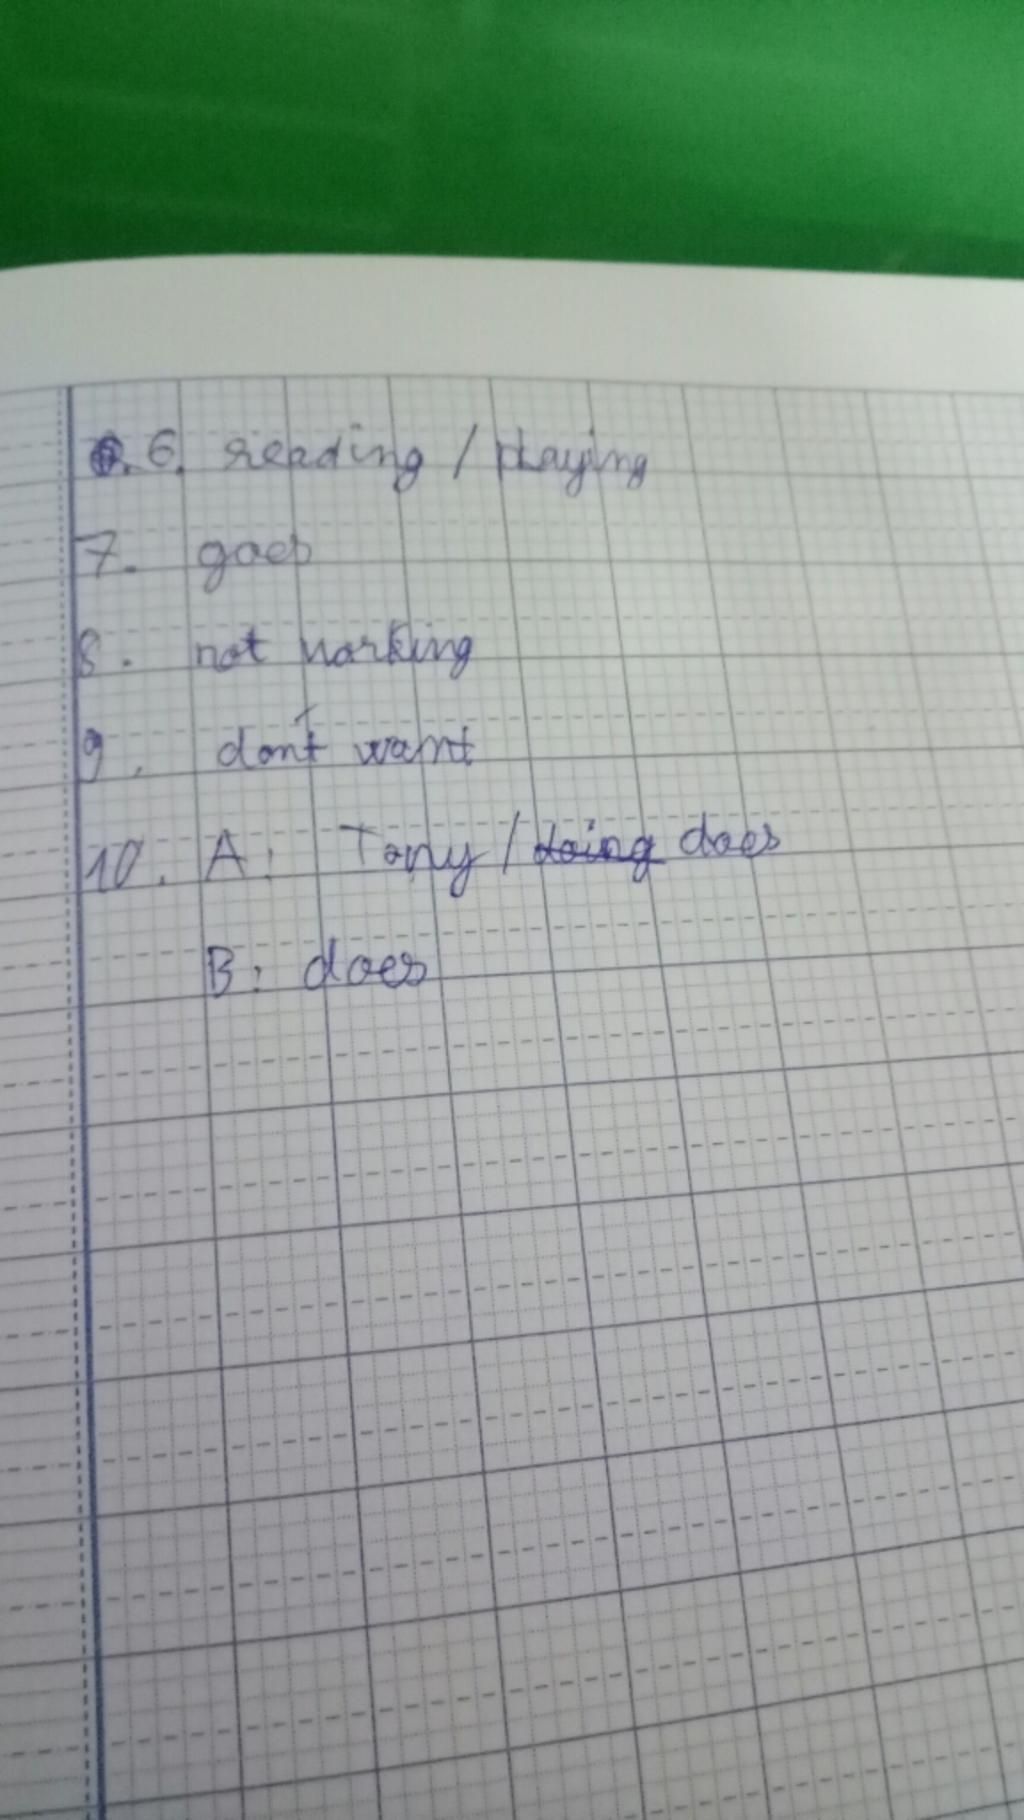 6. reading / playing
7. goes
8. not working
9. don't want
10. A: Tony / doing does
B: does